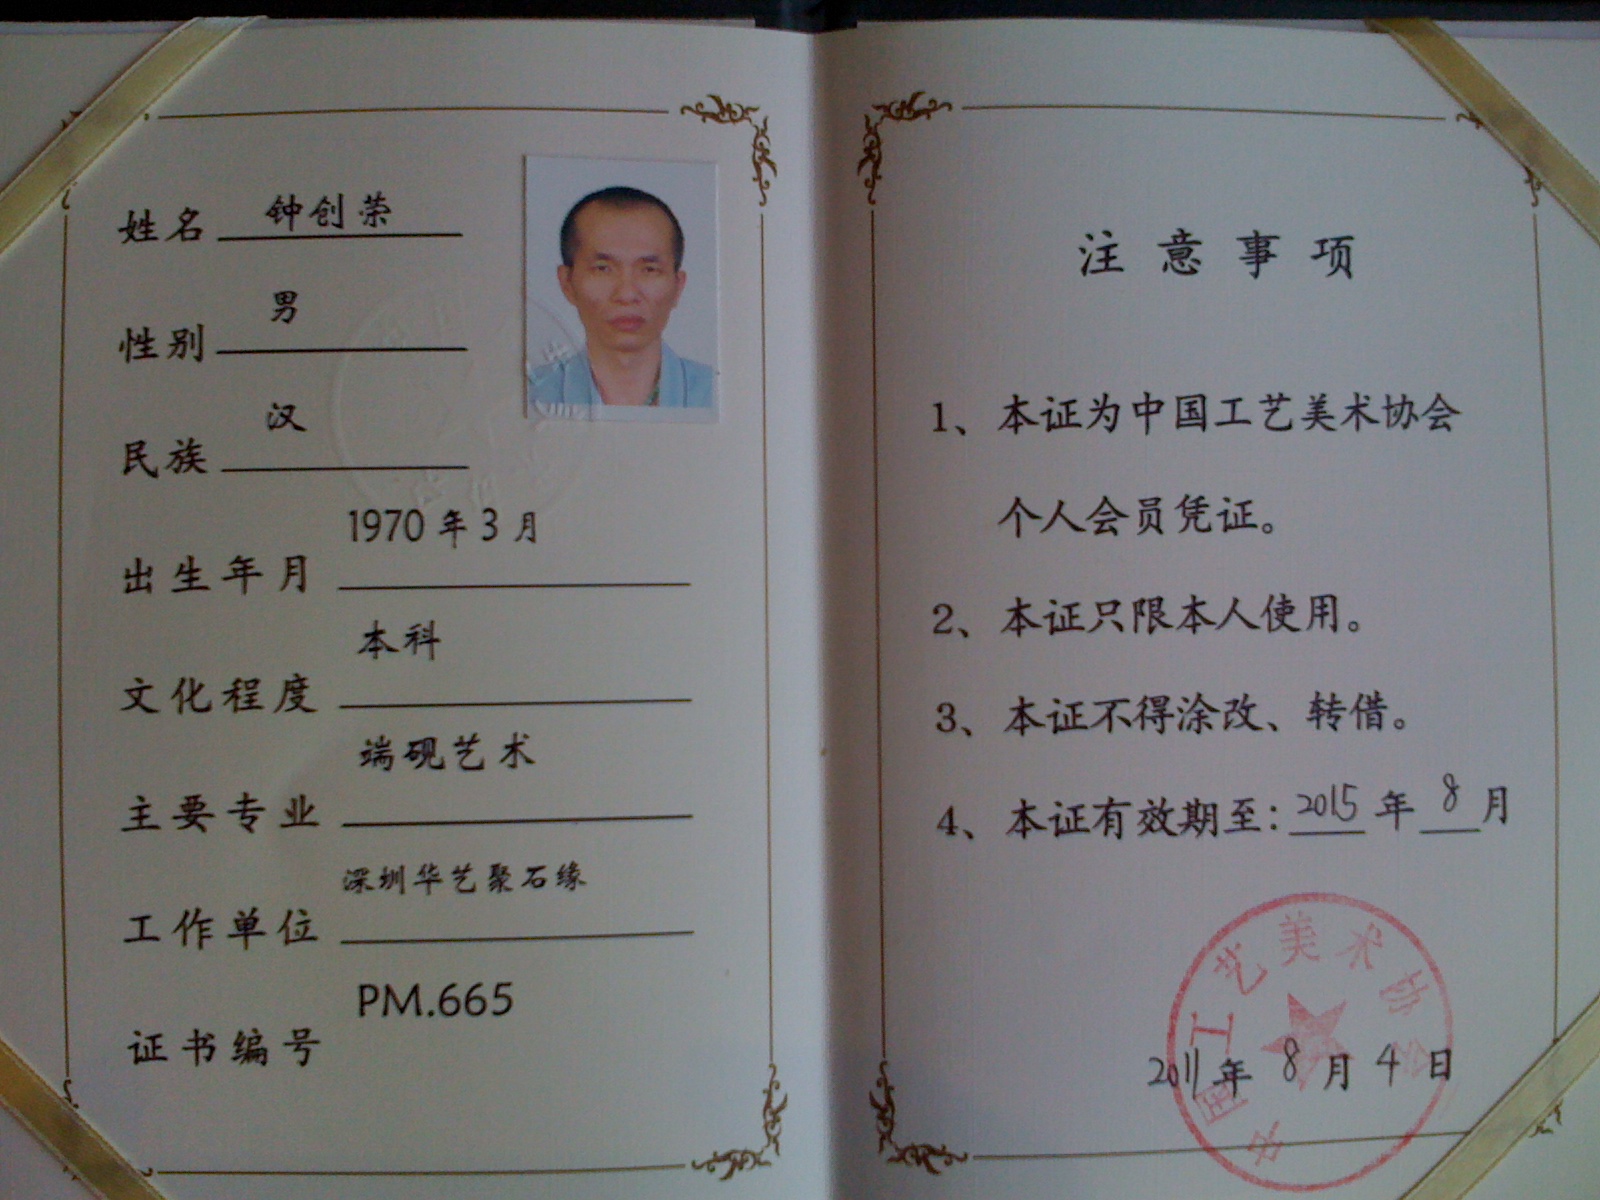 姓名 钟创荣
性别 男
民族 汉
出生年月 1970年3月
文化程度 本科
主要专业 端砚艺术
工作单位 深圳华艺聚石缘
证书编号 PM.665
注意事项
1、本证为中国工艺美术协会
个人会员凭证。
2、本证只限本人使用。
3、本证不得涂改、转借。
4、本证有效期至:2015年8月
中国工艺美术协会
2011年8月4日